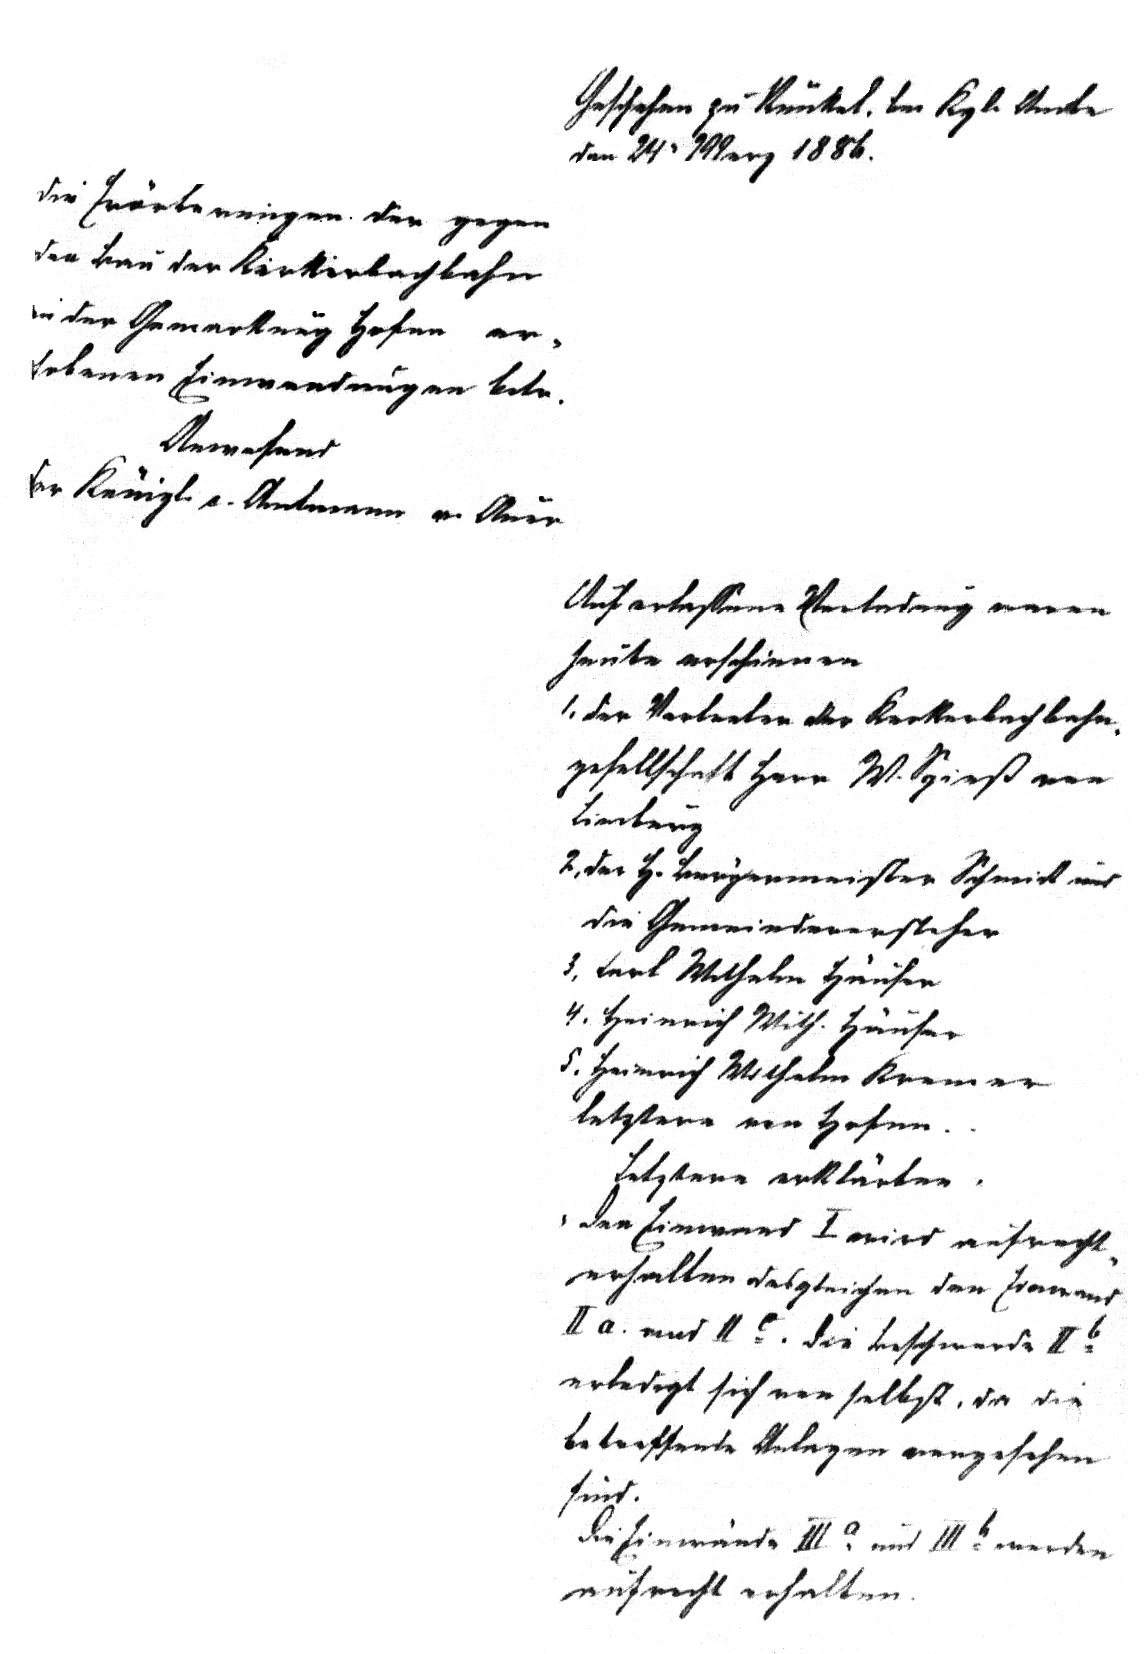 Geschehen zu Runkel, bei Kgl. Amte
den 24. Merz 1886.
die Erörterungen der gegen
den Bau der Kerkerbachbahn
in der Gemarkung Hofen er-
hobenen Einwendungen betr.
Anwesend
der Königl. Amtmann v. Auer
Auf erlassene Verladung waren
heute erschienen
1. der Vertreter der Kerkerbachbahn-
gesellschaft Herr W. Spieß von
Limburg
2, der H. Bürgermeister Schmidt und
die Gemeindevorsteher
3, Carl Wilhelm Häuser
4. Heinrich Wilh. Häuser
5. Heinrich Wilhelm Kremer
letztere von Hofen.
Letztere erklärten.
Den Einwand I wird aufrecht-
erhalten desgleichen den Einwand
II a. und II c. Die Beschwerde II b
erledigt sich von selbst, da die
betreffende Anlagen vorgesehen
sind.
Die Einwände III a und III b werden
aufrecht erhalten.